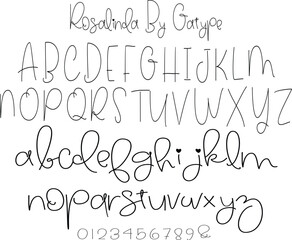 Rosalinda By Gatype
ABCDEFGHIJKLM
NOPQRSTUVWXYZ
abcdefghijklm
nopqrstuvwxyz
0123456789&